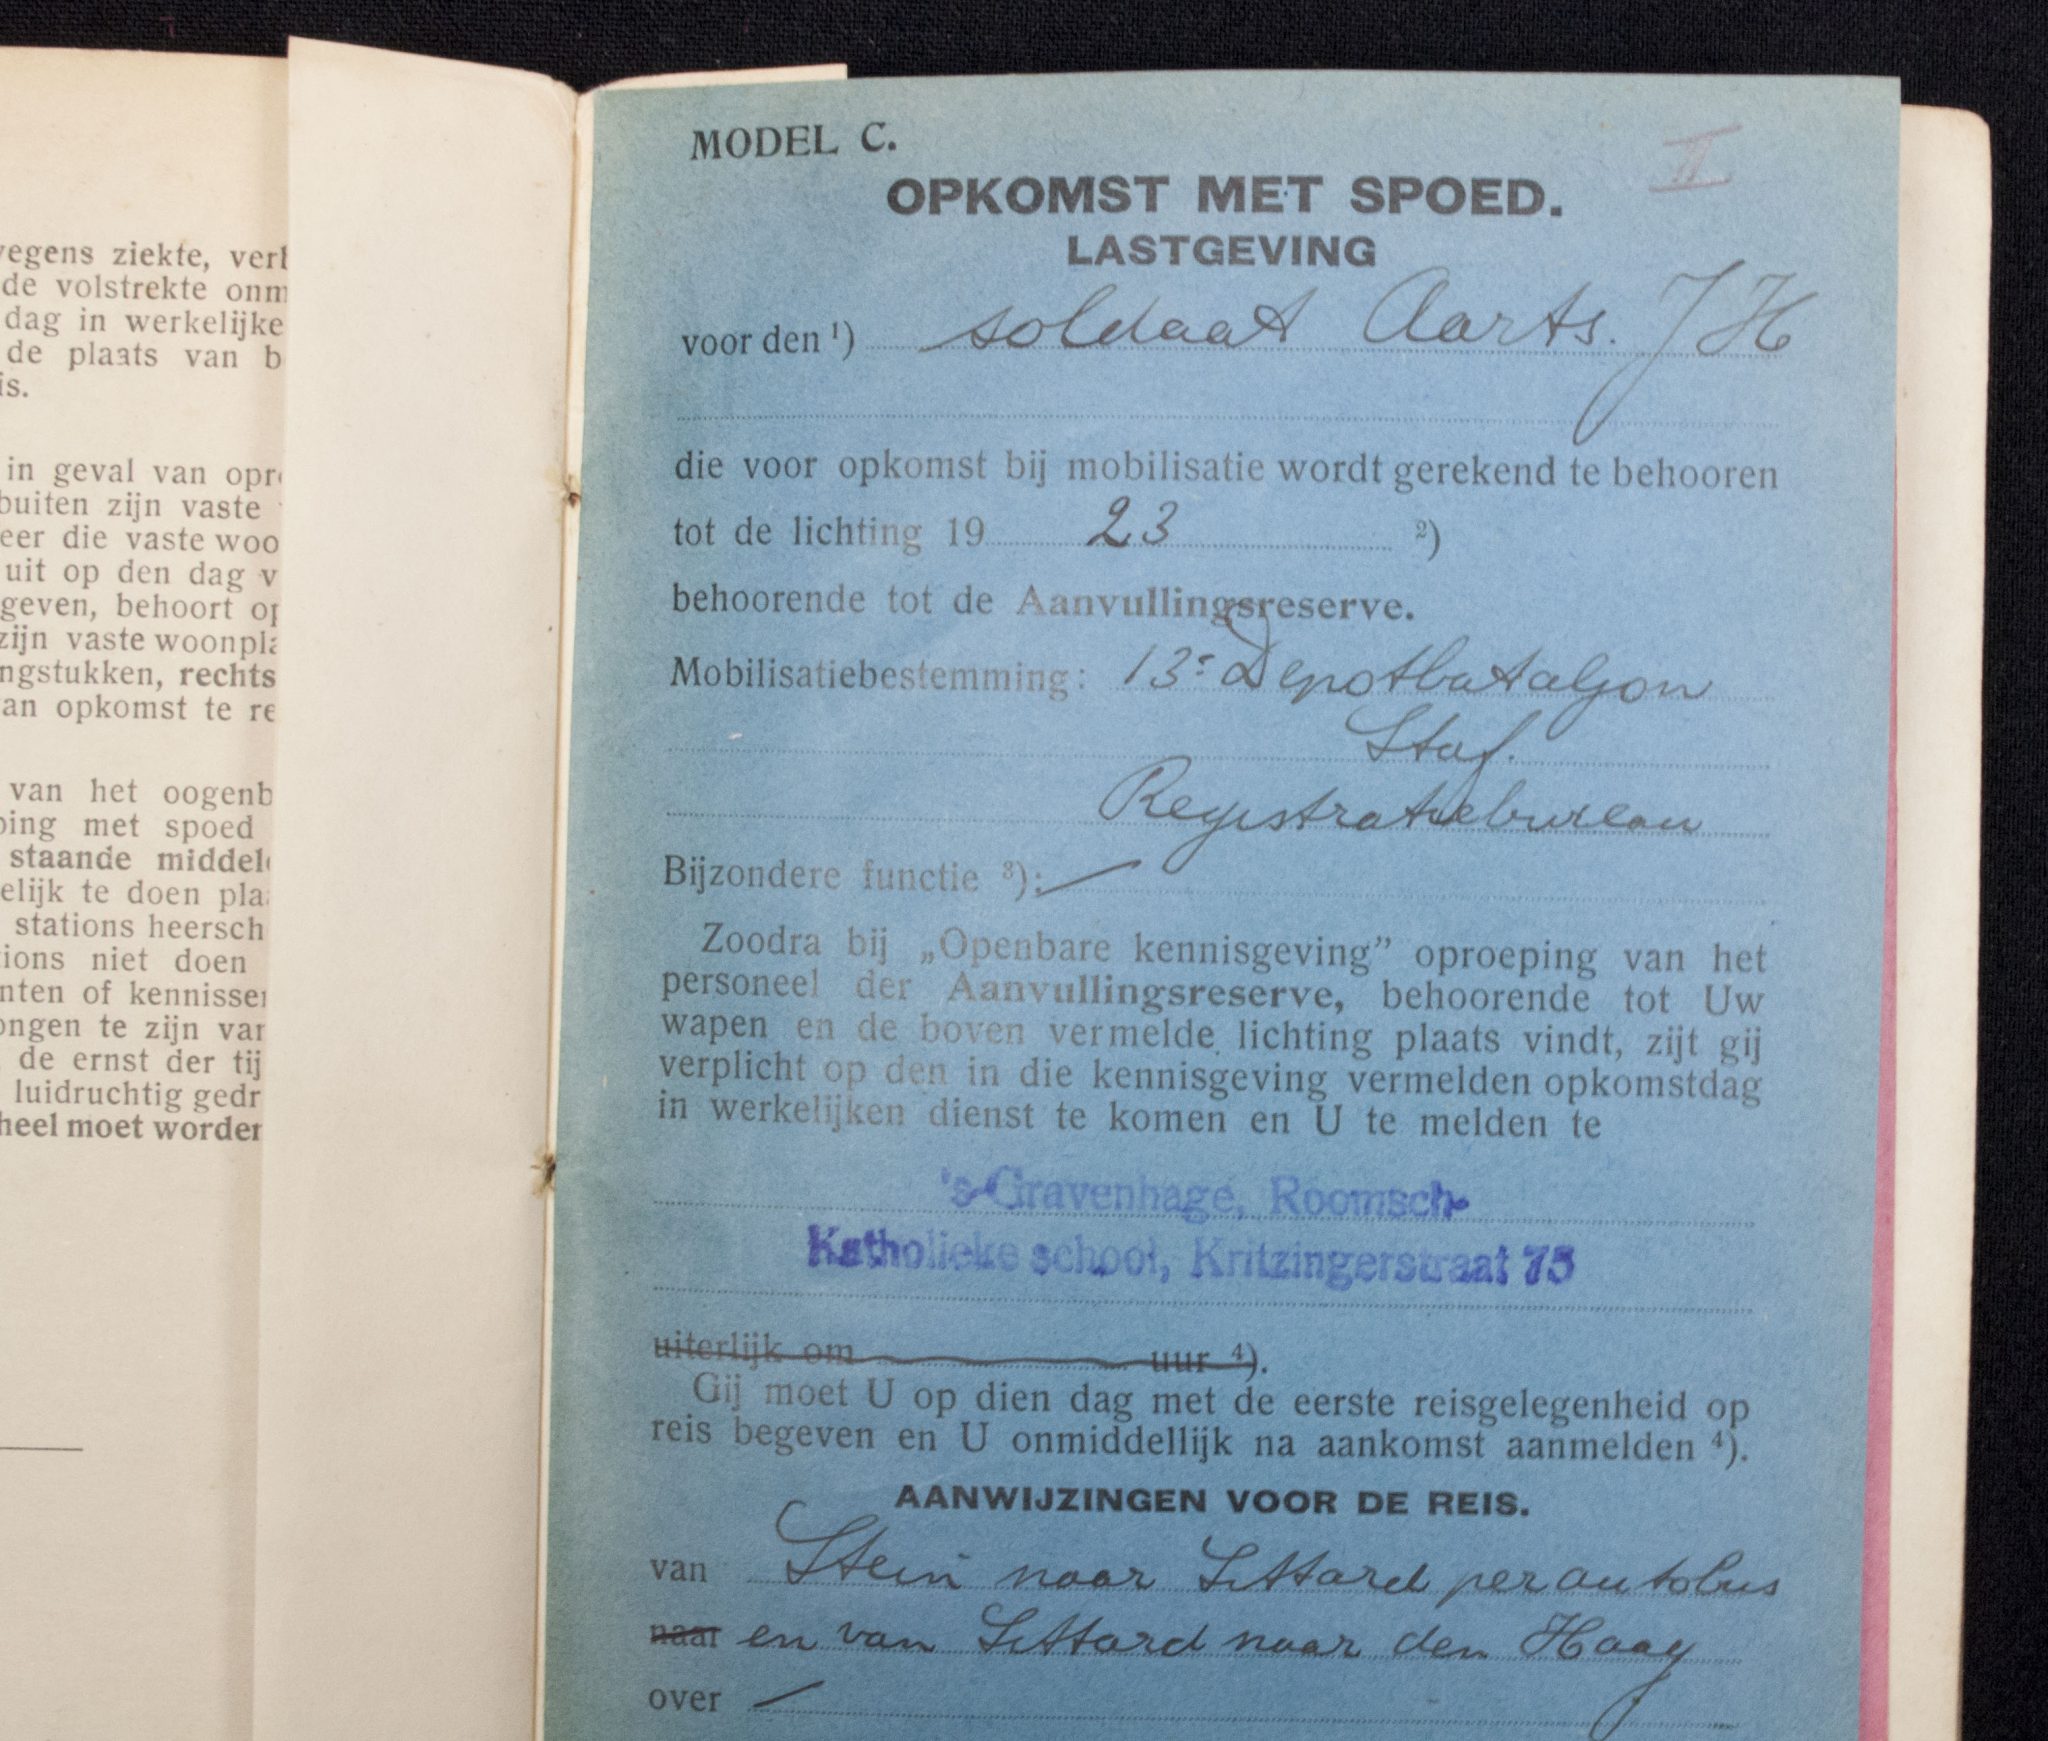 wegens ziekte, verh
de volstrekte onm
dag in werkelijke
de plaats van b
is.
in geval van opro
buiten zijn vaste
eer die vaste woo
uit op den dag v
geven, behoort op
zijn vaste woonpla
ngstukken, rechts
an opkomst te re
van het oogenb
ping met spoed
staande middel
elijk te doen plaa
stations heersch
ions niet doen
nten of kennissen
ongen te zijn van
de ernst der tij
luidruchtig gedr
heel moet worden
MODEL C.
II
OPKOMST MET SPOED.
LASTGEVING
voor den ¹) soldaat Aarts. J H
die voor opkomst bij mobilisatie wordt gerekend te behooren
tot de lichting 19 23 ²)
behoorende tot de Aanvullingsreserve.
Mobilisatiebestemming: 13e Depotbataljon
Staf.
Registratiebureau
Bijzondere functie ³): —
Zoodra bij „Openbare kennisgeving” oproeping van het
personeel der Aanvullingsreserve, behoorende tot Uw
wapen en de boven vermelde lichting plaats vindt, zijt gij
verplicht op den in die kennisgeving vermelden opkomstdag
in werkelijken dienst te komen en U te melden te
's-Gravenhage, Roomsch-
Katholieke school, Kritzingerstraat 75
uiterlijk om uur ⁴).
Gij moet U op dien dag met de eerste reisgelegenheid op
reis begeven en U onmiddellijk na aankomst aanmelden ⁴).
AANWIJZINGEN VOOR DE REIS.
van Stein naar Sittard per autobus
naar en van Sittard naar den Haag
over —